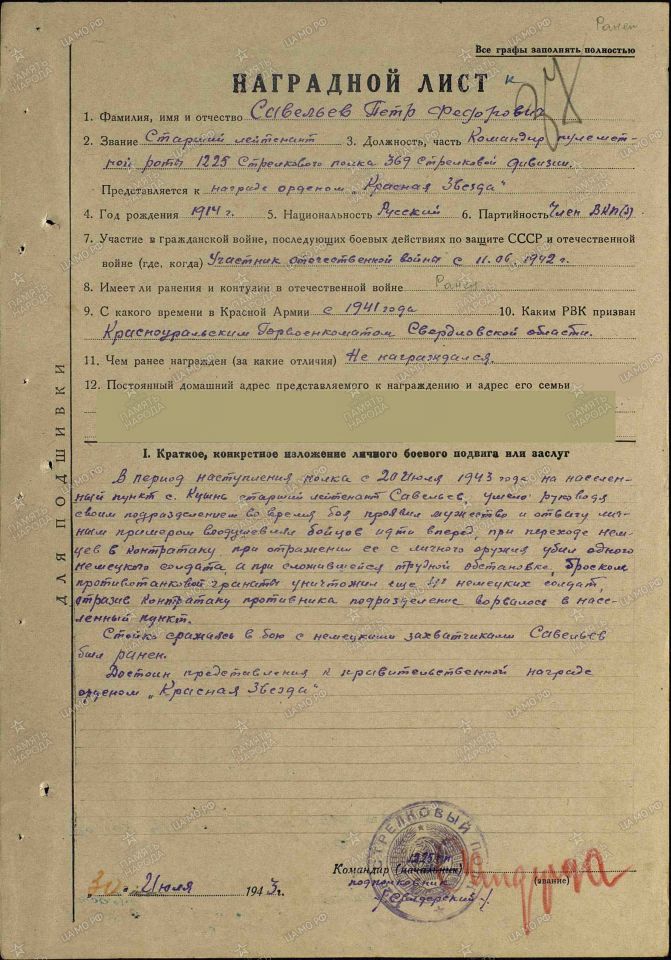 Ранен
Все графы заполнять полностью
НАГРАДНОЙ ЛИСТ
1. Фамилия, имя и отчество Савельев Петр Федорович
2. Звание Старший лейтенант 3. Должность, часть Командир пулемет-
ной роты 1225 Стрелкового полка 369 Стрелковой дивизии.
Представляется к награде орденом „Красная Звезда“
4. Год рождения 1914 г. 5. Национальность Русский 6. Партийность Член ВКП(б)
7. Участие в гражданской войне, последующих боевых действиях по защите СССР и отечественной
войне (где, когда) Участник отечественной война с 11.06.1942 г.
8. Имеет ли ранения и контузии в отечественной войне Ранен
9. С какого времени в Красной Армии с 1941 года 10. Каким РВК призван
Красноуральским Горвоенкоматом Свердловской области.
11. Чем ранее награжден (за какие отличия) Не награждался.
12. Постоянный домашний адрес представляемого к награждению и адрес его семьи
I. Краткое, конкретное изложение личного боевого подвига или заслуг
В период наступления полка с 20 Июля 1943 года на населен-
ный пункт с. старший лейтенант Савельев, умело руководя
своим подразделением во время боя проявил мужество и отвагу лич-
ным примером воодушевлял бойцов идти вперед, при переходе нем-
цев в контратаку при отражении ее с личного оружия убил одного
немецкого солдата, а при сложившейся трудной обстановке, броском
противотанковой гранаты уничтожил еще немецких солдат,
отразив контратаку противника подразделение ворвалось в насе-
ленный пункт.
Стойко сражаясь в бою с немецкими захватчиками Савельев
был ранен.
Достоин представления к правительственной награде
орденом „Красная Звезда“
ДЛЯ ПОДШИВКИ
СТРЕЛКОВЫЙ
Командир (начальник) 1225 сп
подполковник (звание)
/Свидерский/
30 „ Июля 1943 г.
ПАМЯТЬ НАРОДА
ЦАМО.РФ